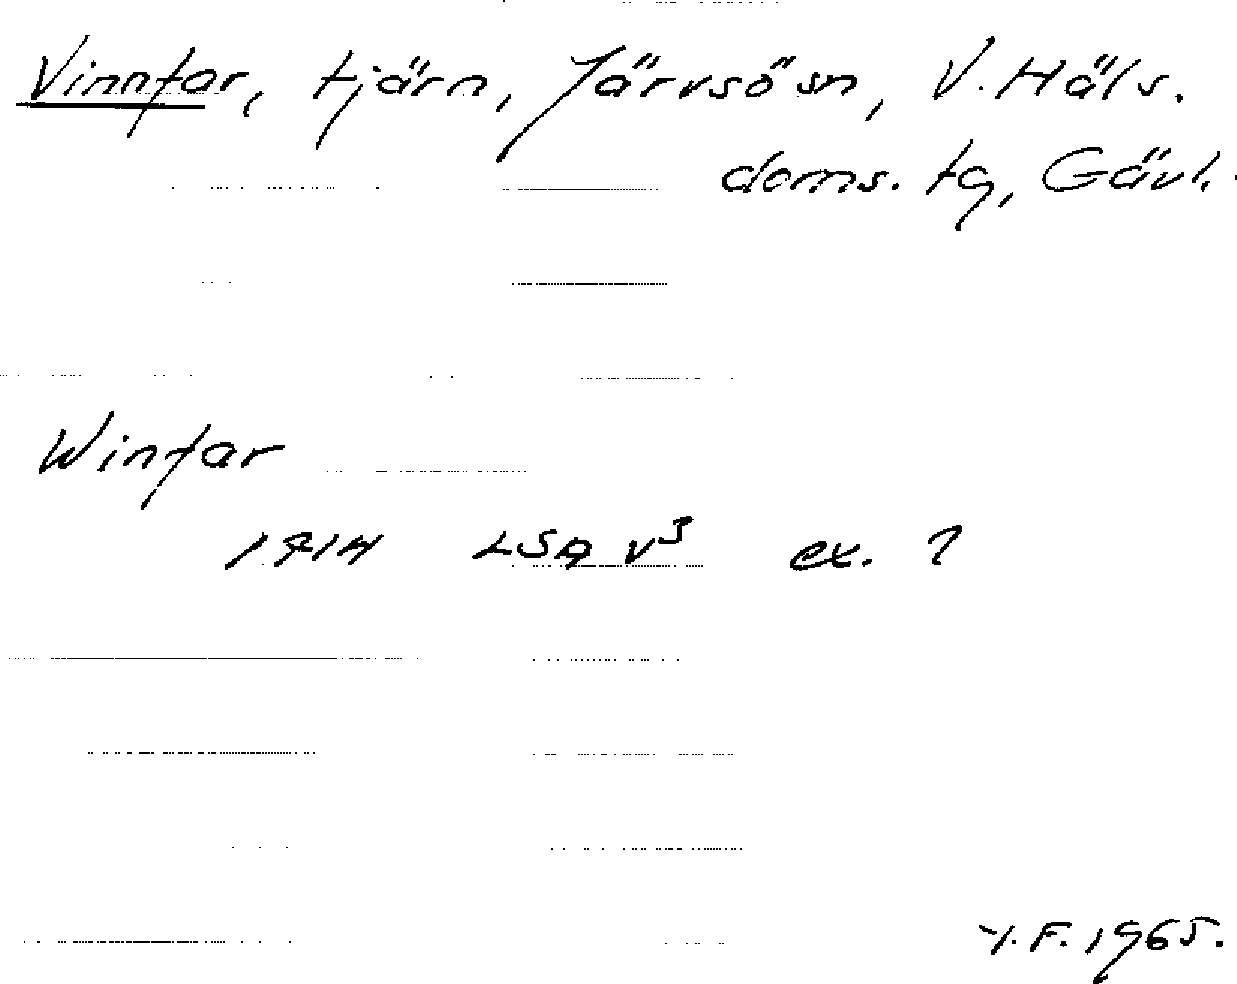 Vinnfar, tjärn, Järvsö sn, V. Häls.
doms. tg, Gävl.
Winfar
1714 LSA V³ ex. ?
Y.F. 1965.